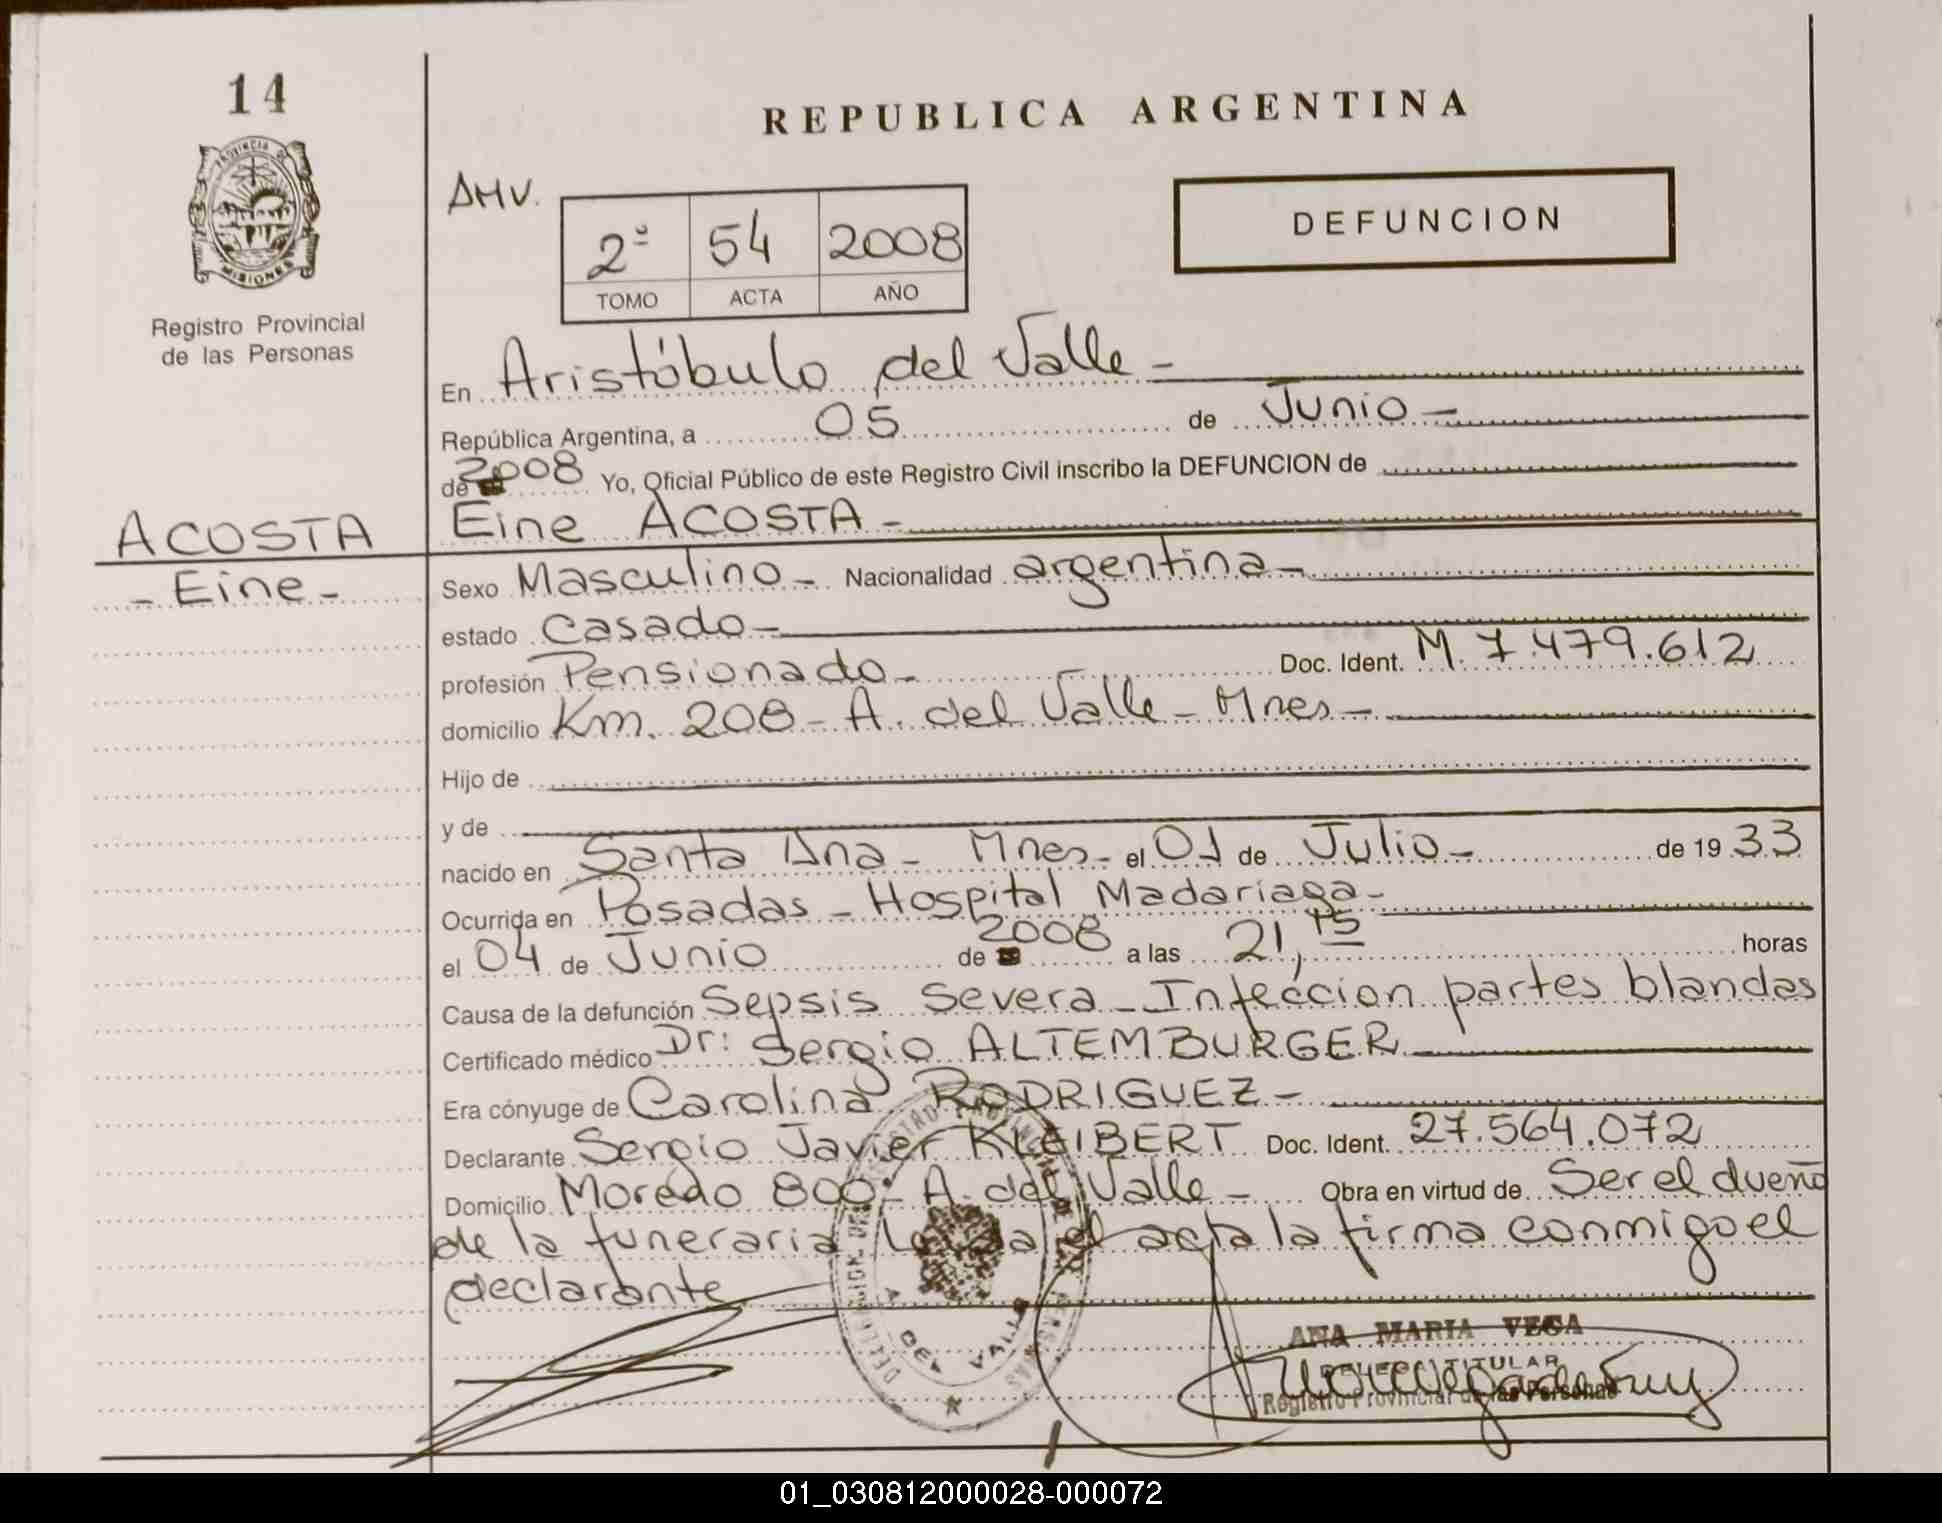 14
PROVINCIA DE
MISIONES
Registro Provincial
de las Personas
REPUBLICA ARGENTINA
AMV.
2º 54 2008
TOMO ACTA AÑO
DEFUNCION
En Aristóbulo del Valle -
República Argentina, a 05 de Junio -
de 2008 Yo, Oficial Público de este Registro Civil inscribo la DEFUNCION de
ACOSTA
- Eine -
Eine ACOSTA -
Sexo Masculino - Nacionalidad argentina -
estado Casado -
profesión Pensionado - Doc. Ident. M. 7.479.612
domicilio Km. 208 - A. del Valle - Mnes -
Hijo de
y de
nacido en Santa Ana - Mnes - el 01 de Julio - de 1933
Ocurrida en Posadas - Hospital Madariaga -
el 04 de Junio de 2008 a las 21,15 horas
Causa de la defunción Sepsis Severa - Infeccion partes blandas
Certificado médico Dr: Sergio ALTEMBURGER
Era cónyuge de Carolina RODRIGUEZ -
Declarante Sergio Javier KLEIBERT Doc. Ident. 27.564.072
Domicilio Moreno 800 - A. del Valle - Obra en virtud de Ser el dueño
de la funeraria Leída el acta la firma conmigo el
declarante
ANA MARIA VEGA
TITULAR
Registro Provincial de las Personas
A DEL VALLE
01_030812000028-000072